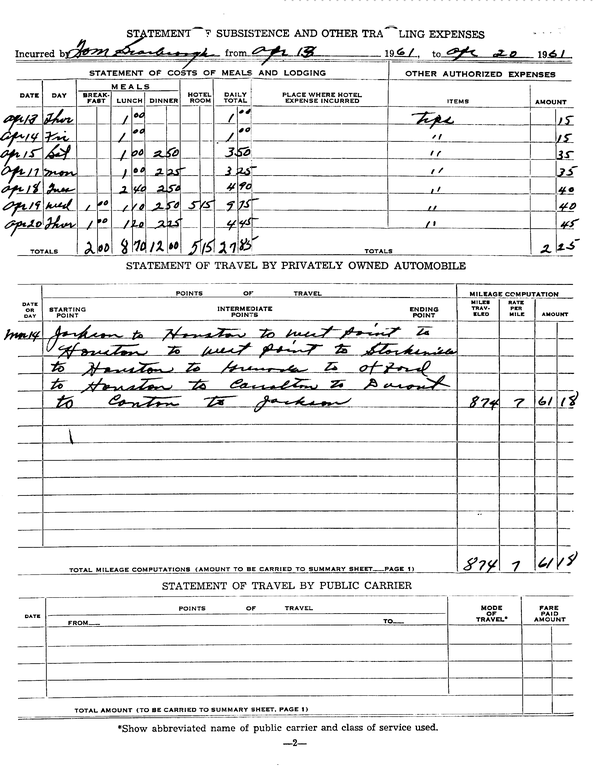 STATEMENT OF SUBSISTENCE AND OTHER TRA LING EXPENSES
Incurred by Tom Scarbrough from apr 13 1961, to apr 20 1961
STATEMENT OF COSTS OF MEALS AND LODGING OTHER AUTHORIZED EXPENSES
DATE DAY MEALS BREAK-FAST LUNCH DINNER HOTEL ROOM DAILY TOTAL PLACE WHERE HOTEL EXPENSE INCURRED ITEMS AMOUNT
apr 13 Thur 1 00 1 00 tips 15
apr 14 Fri 1 00 1 00 " 15
apr 15 Sat 1 00 2 50 3 50 " 35
apr 17 mon 1 00 2 25 3 25 " 35
apr 18 Tues 2 40 2 50 4 90 " 40
apr 19 wed 1 00 1 10 2 50 5 15 9 75 " 40
apr 20 Thur 1 00 1 20 2 25 4 45 " 45
TOTALS 2 00 8 70 12 00 5 15 27 85 TOTALS 2 25
STATEMENT OF TRAVEL BY PRIVATELY OWNED AUTOMOBILE
DATE OR DAY POINTS OF TRAVEL STARTING POINT INTERMEDIATE POINTS ENDING POINT MILEAGE COMPUTATION MILES TRAV-ELED RATE PER MILE AMOUNT
14 Jackson to Houston to west point to
Houston to west point to
to Houston to to Oxford
to Houston to Carrollton to Durant
to Canton to Jackson 874 7 61 18
TOTAL MILEAGE COMPUTATIONS (AMOUNT TO BE CARRIED TO SUMMARY SHEET PAGE 1) 874 7 61 18
STATEMENT OF TRAVEL BY PUBLIC CARRIER
DATE POINTS OF TRAVEL FROM TO MODE OF TRAVEL* FARE PAID AMOUNT
TOTAL AMOUNT (TO BE CARRIED TO SUMMARY SHEET, PAGE 1)
*Show abbreviated name of public carrier and class of service used.
—2—